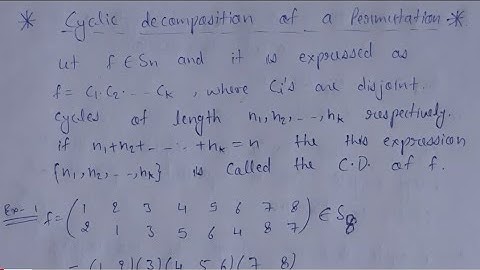 * Cyclic decomposition of a Permutation:*
Let f ∈ Sn and it is expressed as
f = C1.C2. -- -- Ck , where Ci's are disjoint
cycles of length n1, n2, --, nk respectively.
if n1+n2+ --- +nk = n the this expression
{n1, n2, --, nk} is called the C.D. of f.
Ex- 1 f = ( 1 2 3 4 5 6 7 8 ) ∈ S8
2 1 3 5 6 4 8 7
= (1 2)(3)(4 5 6)(7 8)